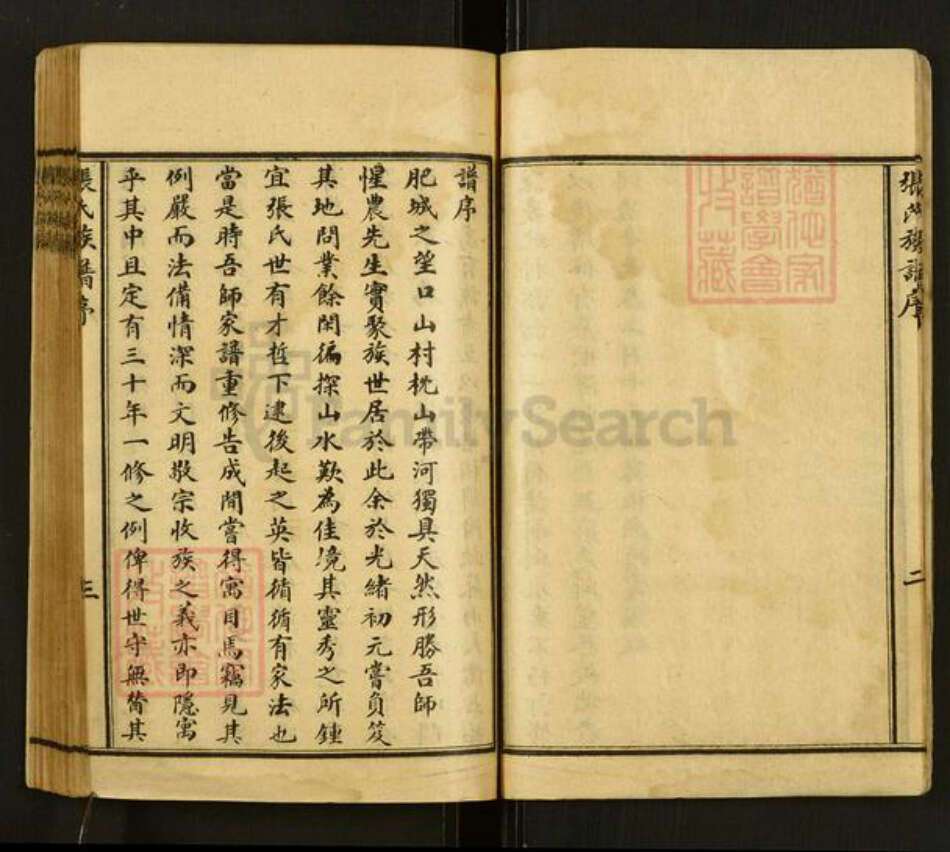 張氏族譜序
二
譜序
肥城之望口山村枕山帶河獨具天然形勝吾師
惺農先生實聚族世居於此余於光緒初元嘗負笈
其地問業餘閑徧探山水歎為佳境其靈秀之所鍾
宜張氏世有才哲下逮後起之英皆循循有家法也
當是時吾師家譜重修告成間嘗得寓目焉竊見其
例嚴而法備情深而文明敬宗收族之義亦即隱寓
乎其中且定有三十年一修之例俾得世守無替其
張氏族譜序
三
猶他家
譜學會
收藏
猶他家
譜學會
收藏
FamilySearch